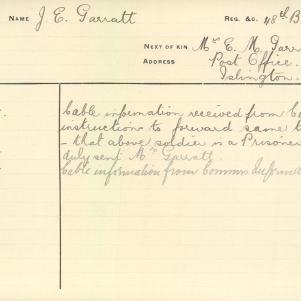 NAME J. E. Garratt REG. &C. 48th B
NEXT OF KIN Mr E. M. Garr
ADDRESS Post Office.
Islington.
Cable information received from
instructions to forward same t
- that above soldier is a Prisoner
duly sent Mrs Garratt.
Cable information from Commn Informa